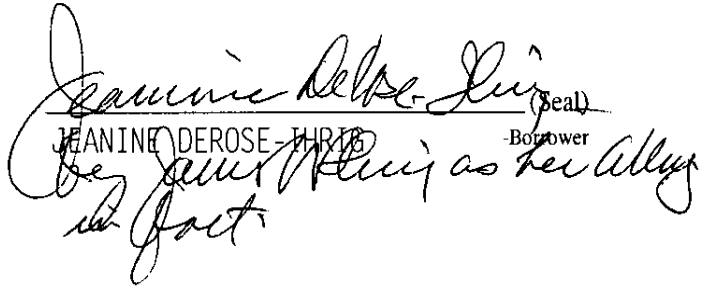 Jeanine DeRose-Ihrig (Seal)
JEANINE DEROSE-IHRIG -Borrower
by James Ihrig as her Attny
in fact.